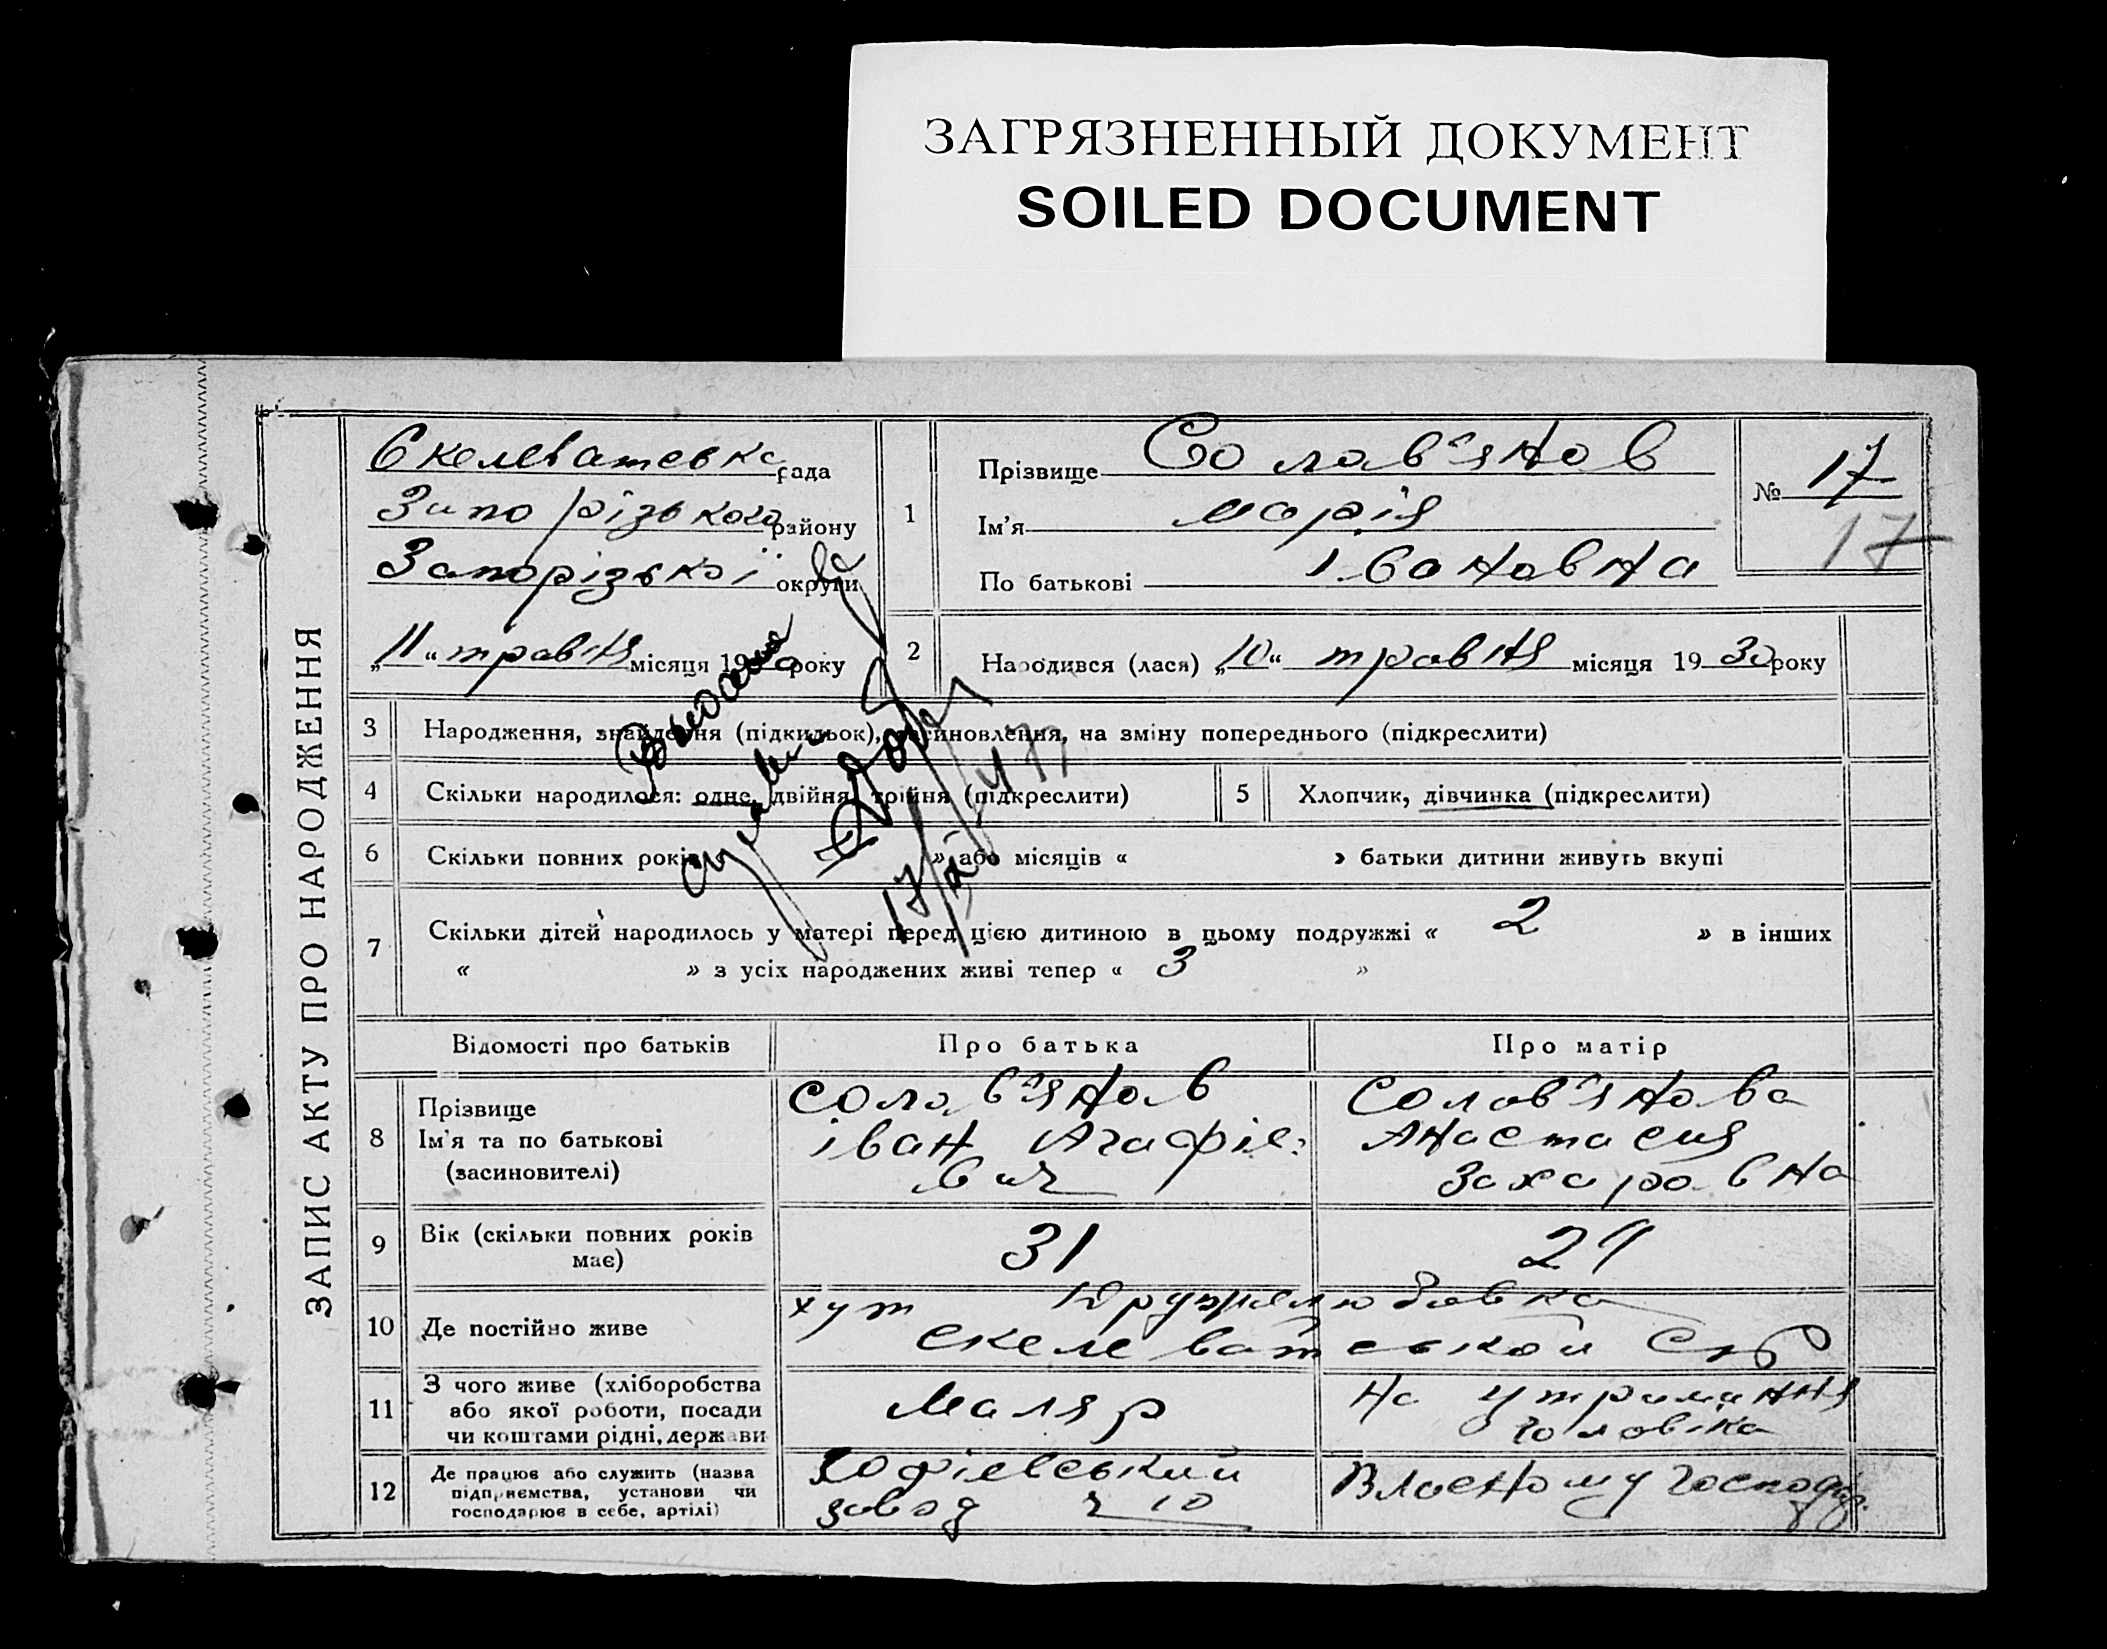 ЗАГРЯЗНЕННЫЙ ДОКУМЕНТ
SOILED DOCUMENT
ЗАПИС АКТУ ПРО НАРОДЖЕННЯ
Скелеватевка рада
Запорізького району
Запорізької округи
„11“ травня місяця 19 року
1
Прізвище Солав'янов
Ім'я марія
По батькові івановна
№ 17
17
2 Народився (лася) „10“ травня місяця 1930 року
3 Народження, знайдення (підкидьок), усиновлення, на зміну попереднього (підкреслити)
4 Скільки народилося: одне, двійня, трійня (підкреслити)
5 Хлопчик, дівчинка (підкреслити)
6 Скільки повних років » або місяців « » батьки дитини живуть вкупі
7 Скільки дітей народилось у матері перед цією дитиною в цьому подружжі « 2 » в інших
« » з усіх народжених живі тепер « 3 »
Відомості про батьків Про батька Про матір
8 Прізвище
Ім'я та по батькові
(засиновителі)
Солов'янов
іван Агафіє-
вич
Солов'янова
Анастасия
Захаровна
9 Вік (скільки повних років
має)
31
29
10 Де постійно живе
хут
Скелеватської с/р
11 З чого живе (хліборобства
або якої роботи, посади
чи коштами рідні, держави
Маляр
На утримання
чоловіка
12 Де працює або служить (назва
підприємства, установи чи
господарює в себе, артілі)
завод ч 10
Власному господар.